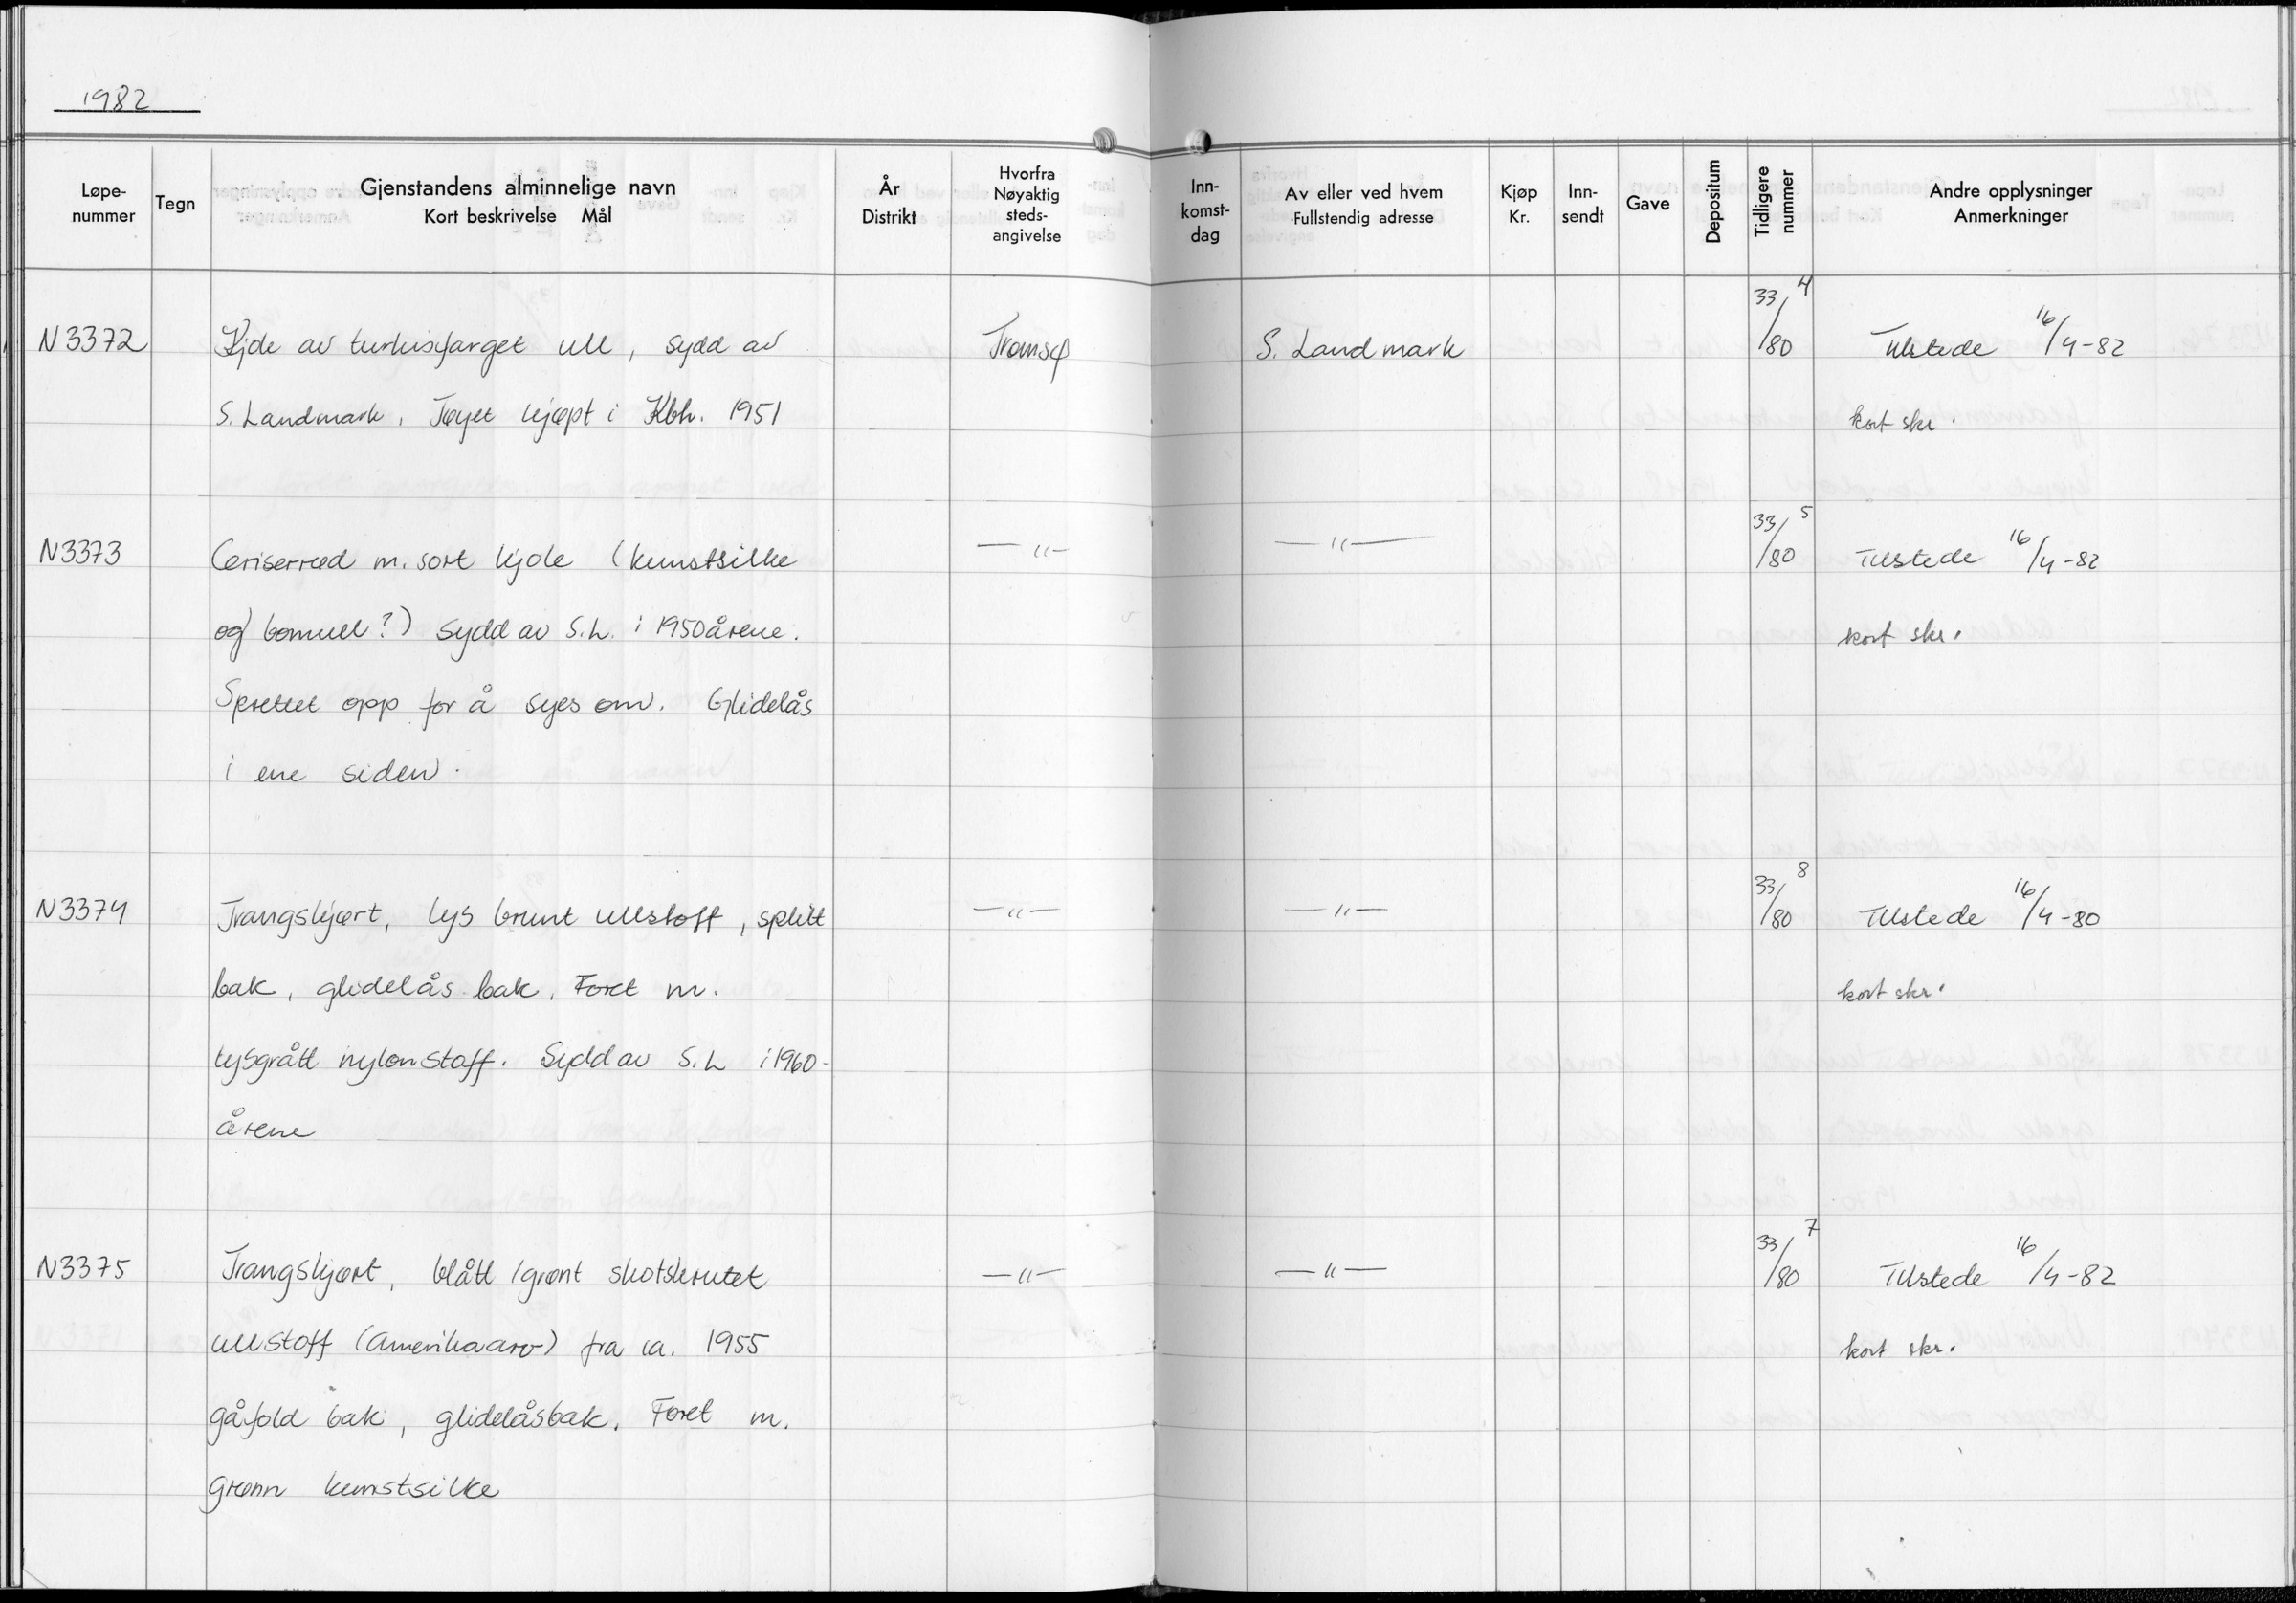 1982
Løpe-nummer Tegn Gjenstandens alminnelige navn Kort beskrivelse Mål År Distrikt Hvorfra Nøyaktig steds-angivelse Inn-komst-dag Av eller ved hvem Fullstendig adresse Kjøp Kr. Inn-sendt Gave Depositum Tidligere nummer Andre opplysninger Anmerkninger
N3372 Kjole av turkisfarget ull, sydd av Tromsø S. Landmark 33/80 4 Tilstede 16/4-82
S. Landmark, Tøyet kjøpt i Kbh. 1951 kort skr.
N3373 Ceriserød m. sort kjole (kunstsilke —"— —"— 33/80 5 Tilstede 16/4-82
og bomull?) Sydd av S.L. i 1950årene. kort skr.
Sprettet opp for å syes om. Glidelås
i ene siden.
N3374 Trangskjørt, lys brunt ullstoff, splitt —"— —"— 33/80 8 Tilstede 16/4-80
bak, glidelås bak. Foret m. kort skr.
lysgrått nylonstoff. Sydd av S.L i 1960-
årene
N3375 Trangskjørt, blått/grønt skotskrutet —"— —"— 33/80 7 Tilstede 16/4-82
ullstoff (amerikaarv) fra ca. 1955 kort skr.
gåfold bak, glidelåsbak. Foret m.
grønn kunstsilke